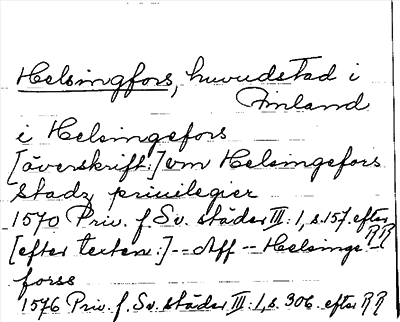 Helsingfors, huvudstad i
Finland
i Helsingefors
[överskrift:] om Helsingefors
stadz priuilegier
1570 Priv. f. Sv. städer III: 1, s. 157. efter RR
[efter texten:] -- Aff -- Helsings-
forss
1576 Priv. f. Sv. städer III: 1, s. 306. efter RR